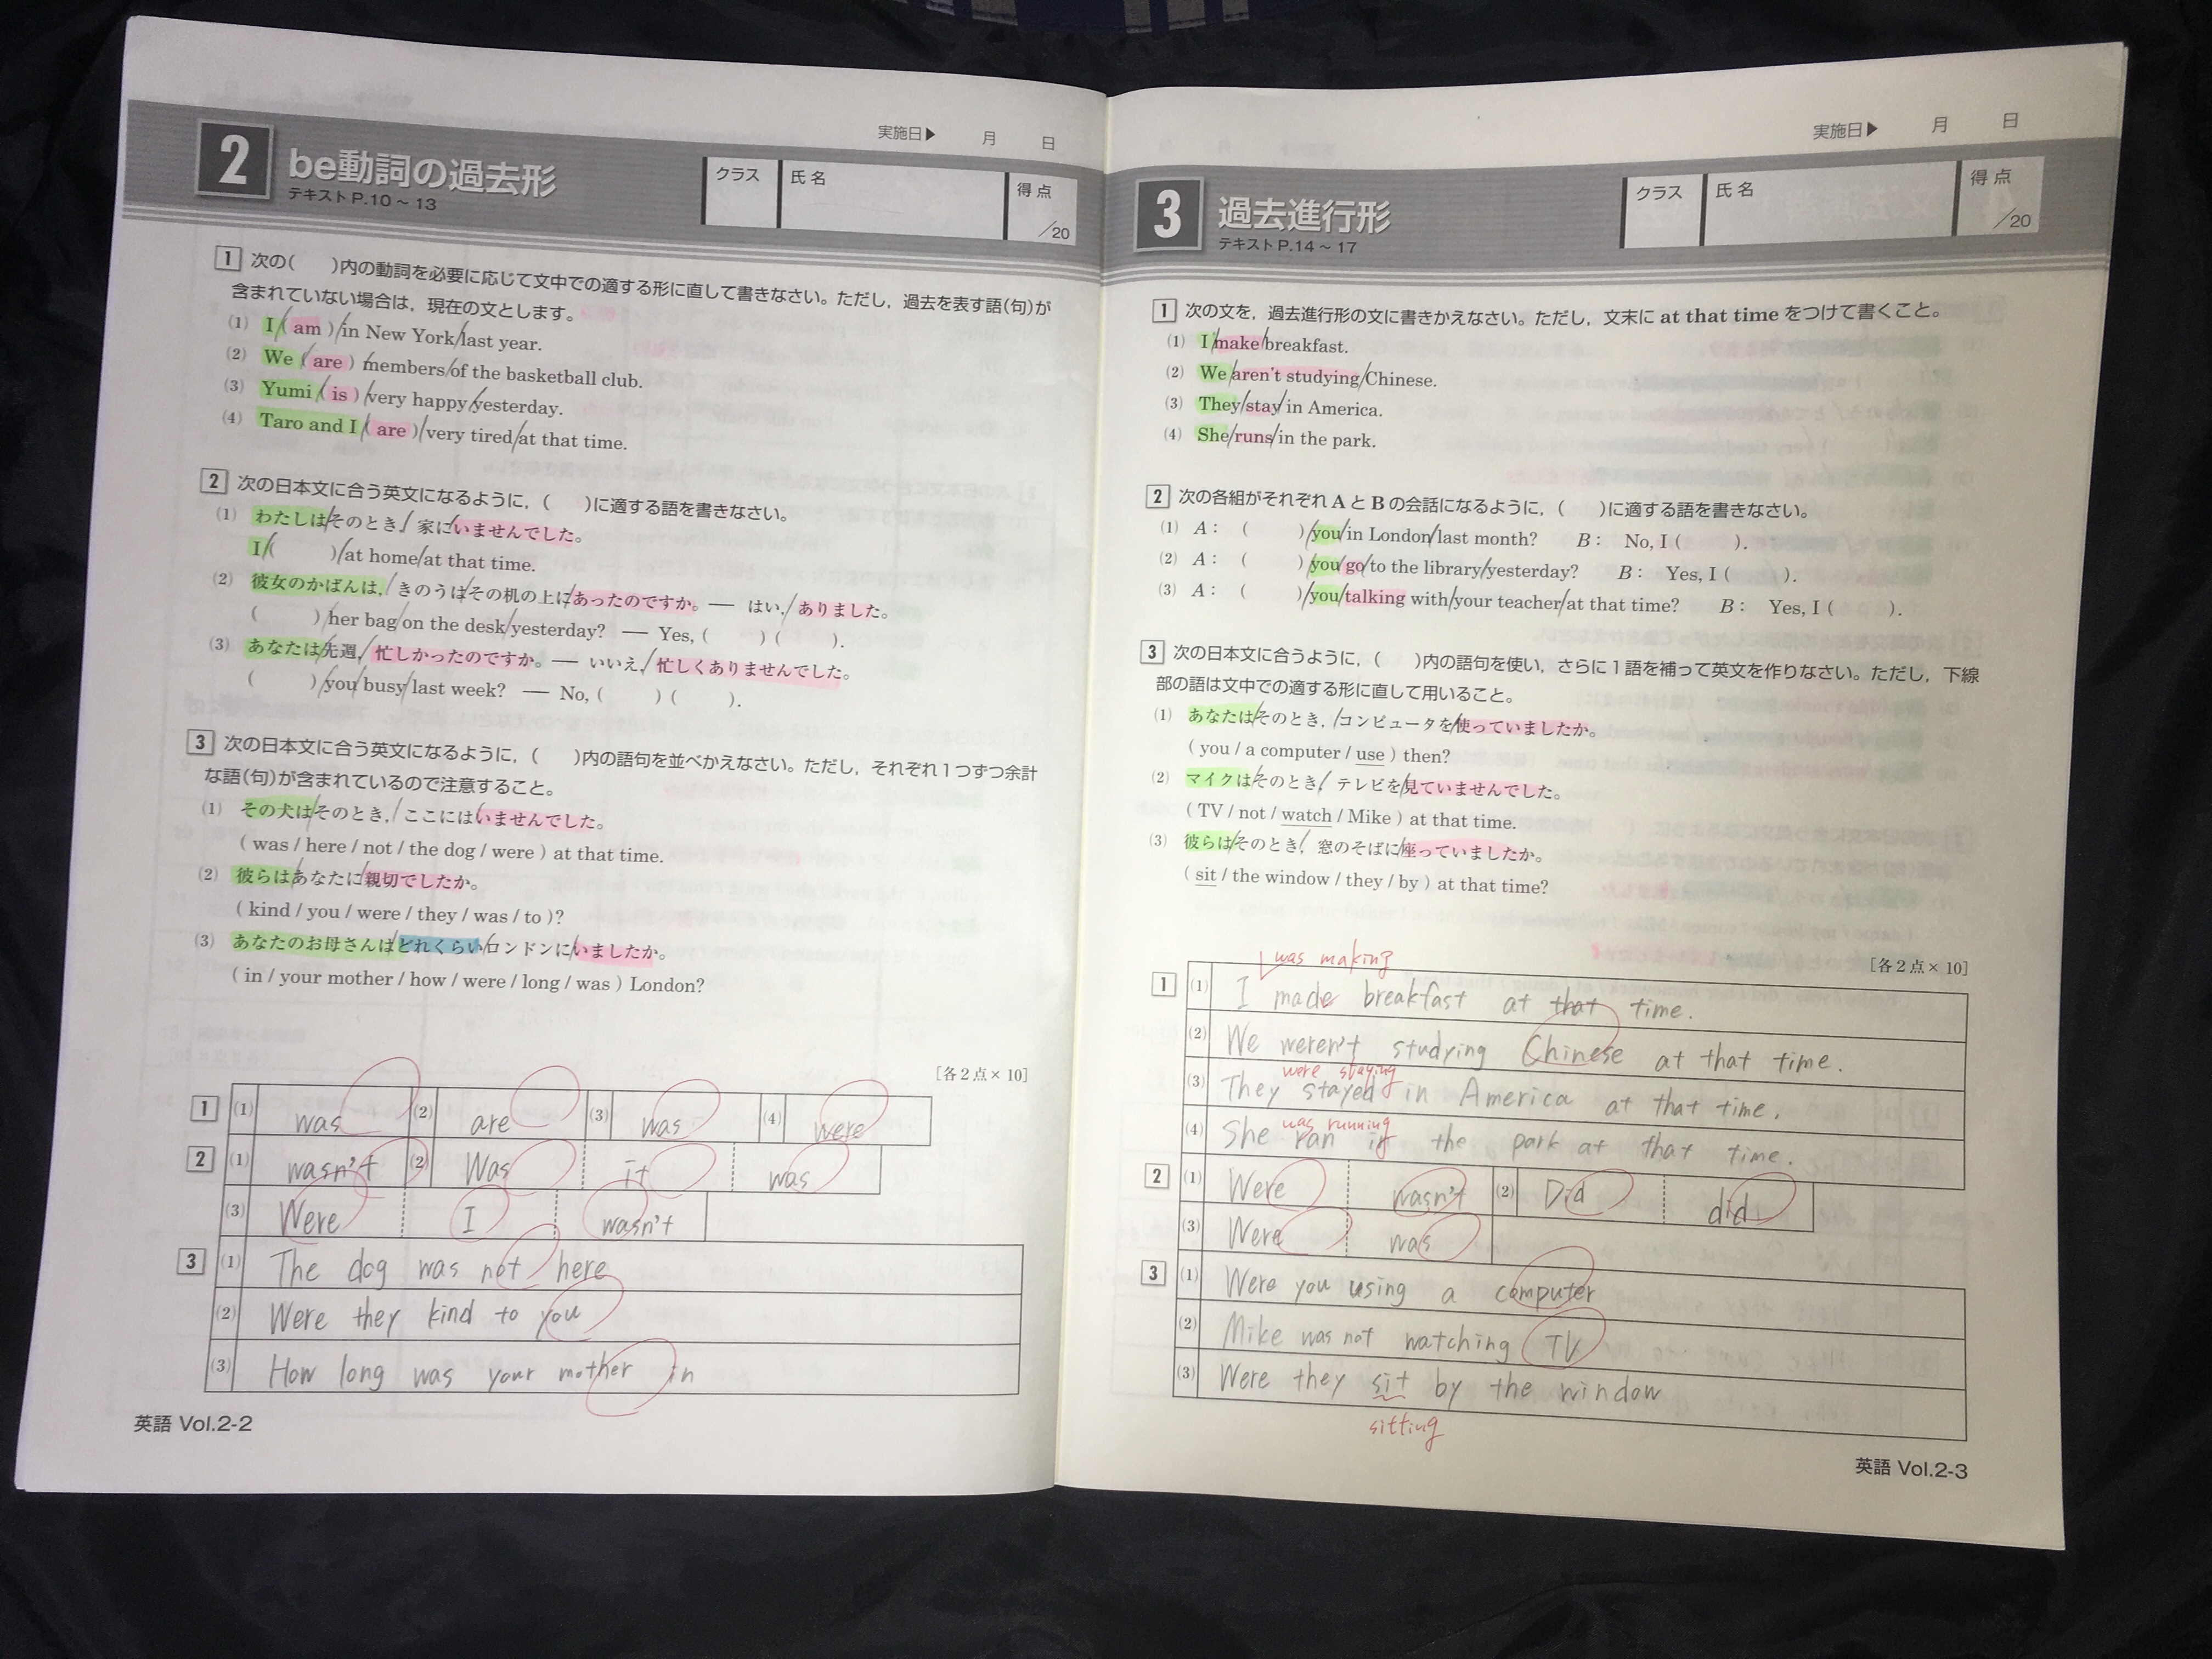 実施日▶ 月 日
2 be動詞の過去形
テキストP.10～13
クラス 氏名 得点 /20
1 次の( )内の動詞を必要に応じて文中での適する形に直して書きなさい。ただし，過去を表す語(句)が
含まれていない場合は，現在の文とします。
(1) I ( am ) in New York last year.
(2) We ( are ) members of the basketball club.
(3) Yumi ( is ) very happy yesterday.
(4) Taro and I ( are ) very tired at that time.
2 次の日本文に合う英文になるように，( )に適する語を書きなさい。
(1) わたしはそのとき，家にいませんでした。
I ( ) at home at that time.
(2) 彼女のかばんは，きのうはその机の上にあったのですか。― はい，ありました。
( ) her bag on the desk yesterday? ― Yes, ( ) ( ).
(3) あなたは先週，忙しかったのですか。― いいえ，忙しくありませんでした。
( ) you busy last week? ― No, ( ) ( ).
3 次の日本文に合う英文になるように，( )内の語句を並べかえなさい。ただし，それぞれ1つずつ余計
な語(句)が含まれているので注意すること。
(1) その犬はそのとき，ここにはいませんでした。
( was / here / not / the dog / were ) at that time.
(2) 彼らはあなたに親切でしたか。
( kind / you / were / they / was / to )?
(3) あなたのお母さんはどれくらいロンドンにいましたか。
( in / your mother / how / were / long / was ) London?
[各2点×10]
1 (1) was (2) are (3) was (4) were
2 (1) wasn't (2) Was it was
(3) Were I wasn't
3 (1) The dog was not here
(2) Were they kind to you
(3) How long was your mother in
英語 Vol.2-2
実施日▶ 月 日
3 過去進行形
テキストP.14～17
クラス 氏名 得点 /20
1 次の文を，過去進行形の文に書きかえなさい。ただし，文末に at that time をつけて書くこと。
(1) I make breakfast.
(2) We aren't studying Chinese.
(3) They stay in America.
(4) She runs in the park.
2 次の各組がそれぞれAとBの会話になるように，( )に適する語を書きなさい。
(1) A： ( ) you in London last month? B： No, I ( ).
(2) A： ( ) you go to the library yesterday? B： Yes, I ( ).
(3) A： ( ) you talking with your teacher at that time? B： Yes, I ( ).
3 次の日本文に合うように，( )内の語句を使い，さらに1語を補って英文を作りなさい。ただし，下線
部の語は文中での適する形に直して用いること。
(1) あなたはそのとき，コンピュータを使っていましたか。
( you / a computer / use ) then?
(2) マイクはそのとき，テレビを見ていませんでした。
( TV / not / watch / Mike ) at that time.
(3) 彼らはそのとき，窓のそばに座っていましたか。
( sit / the window / they / by ) at that time?
[各2点×10]
was making
1 (1) I made breakfast at that time.
(2) We weren't studying Chinese at that time.
were staying
(3) They stayed in America at that time.
was running
(4) She ran in the park at that time.
2 (1) Were wasn't (2) Did did
(3) Were was
3 (1) Were you using a computer
(2) Mike was not watching TV
(3) Were they sit by the window
sitting
英語 Vol.2-3